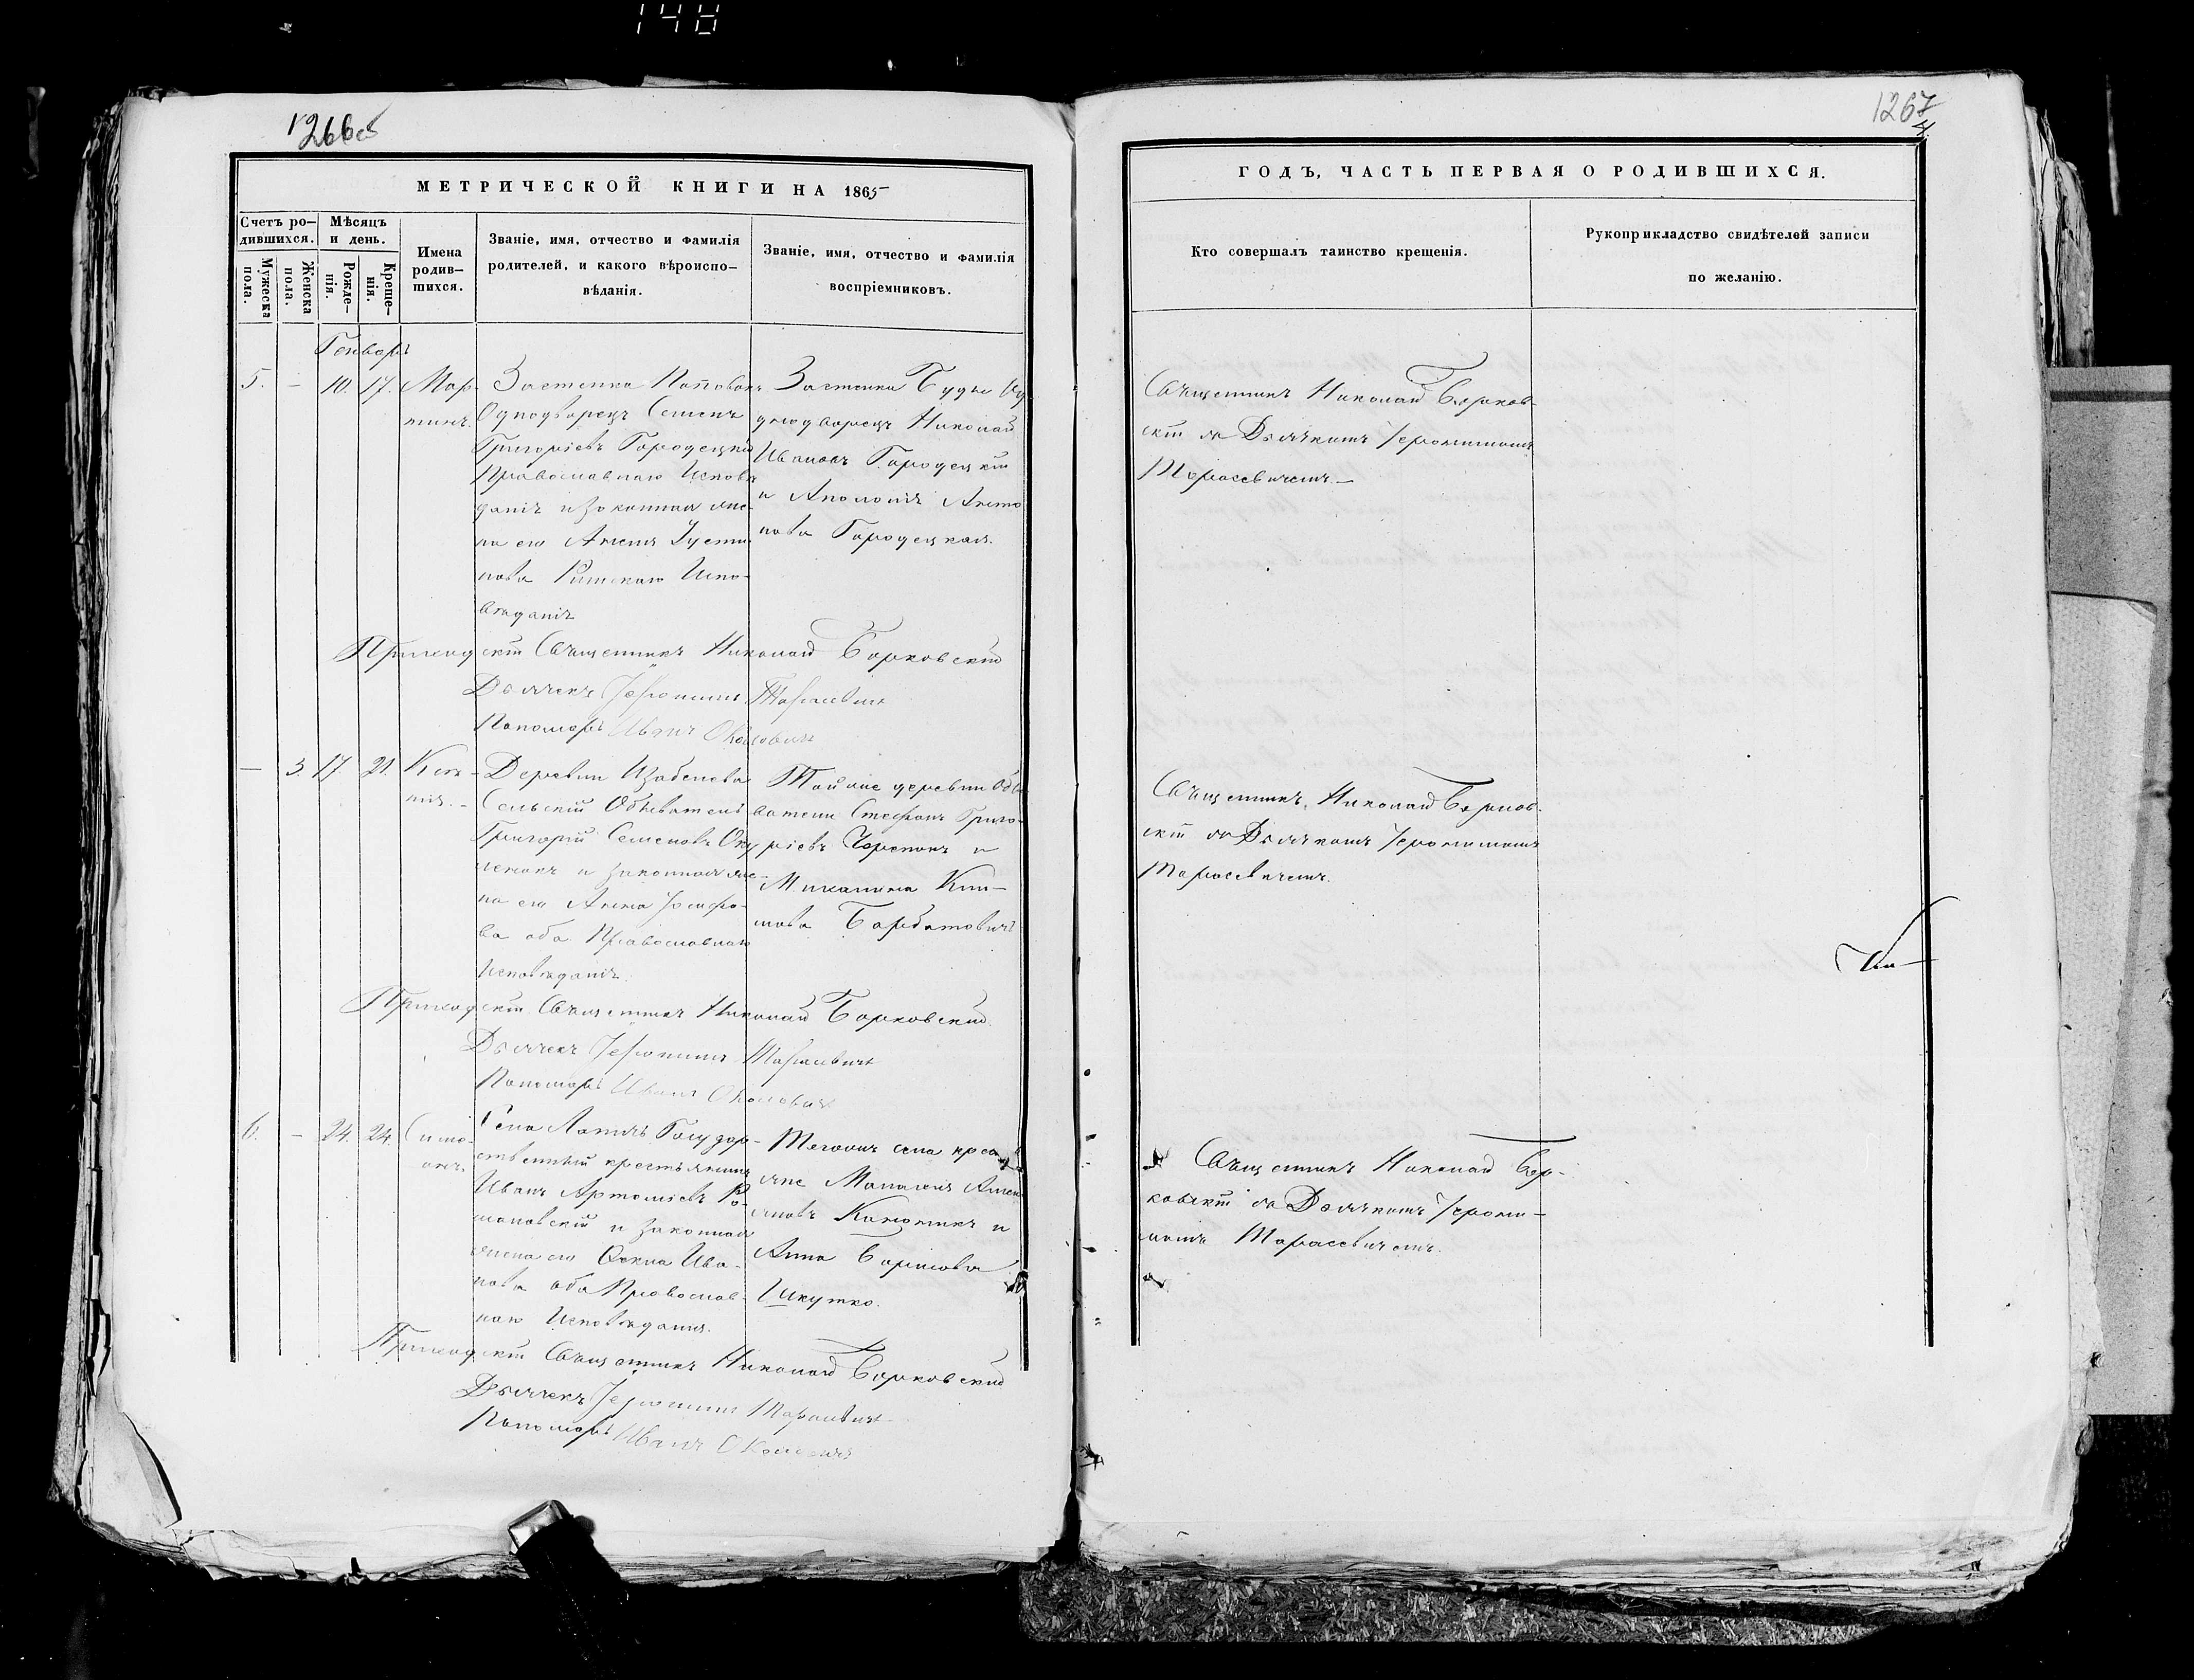 148
1266об
МЕТРИЧЕСКОЙ КНИГИ НА 1865
Счетъ ро-
дившихся.
Мѣсяцъ
и день.
Мужеска
пола.
Женска
пола.
Рожде-
нія.
Креще-
нія.
Имена
родив-
шихся.
Званіе, имя, отчество и фамилія
родителей, и какого вѣроиспо-
вѣданія.
Званіе, имя, отчество и фамилія
воспріемниковъ.
Генварь
5. — 10. 17. Мар-
тинъ.
Застенка
Однодворецъ Семенъ
Григоріевъ Городецкій
Православнаго Исповѣ
данія и законная же-
на его Агнета Іусти
нова Римскаго Испо-
вѣданія
Застенка Будки Од
нодворецъ Николай
Ивановъ Городецкій
и Аполонія Анто
нова Городецкая.
Приходскій Священникъ Николай Берковскій
Дьячекъ Іеронимъ Тарасевичъ
Пономарь Иванъ
— 3. 17. 21. Ксе-
нія.
Деревни
Сельскій Обыватель
Григорій Семеновъ
и законная же-
на его Анна Іосифо-
ва оба Православнаго
Исповѣданія.
Той же деревни Обы
ватели Стефанъ Григо-
ріевъ и
Михалина Кли-
мова
Приходскій Священникъ Николай Берковскій
Дьячекъ Іеронимъ Тарасевичъ
Пономарь Иванъ
6. — 24. 24. Симо-
онъ.
Села Государ-
ственный крестьянинъ
Иванъ Ро-
мановскій и законная
жена его Ива-
нова оба Православ-
наго Исповѣданія.
Тогожъ села кресть
яне
и
Анна Борисова
Шкутко.
Приходскій Священникъ Николай Берковскій
Дьячекъ Іеронимъ Тарасевичъ
Пономарь Иванъ
1267
ГОДЪ, ЧАСТЬ ПЕРВАЯ О РОДИВШИХСЯ.
Кто совершалъ таинство крещенія.
Рукоприкладство свидѣтелей записи
по желанію.
Священникъ Николай Берков-
скій съ Дьячкомъ Іеронимомъ
Тарасевичемъ.—
Священникъ Николай Берков-
скій съ Дьячкомъ Іеронимомъ
Тарасевичемъ.
Священникъ Николай Бер-
ковскій съ Дьячкомъ Іерони-
момъ Тарасевичемъ.